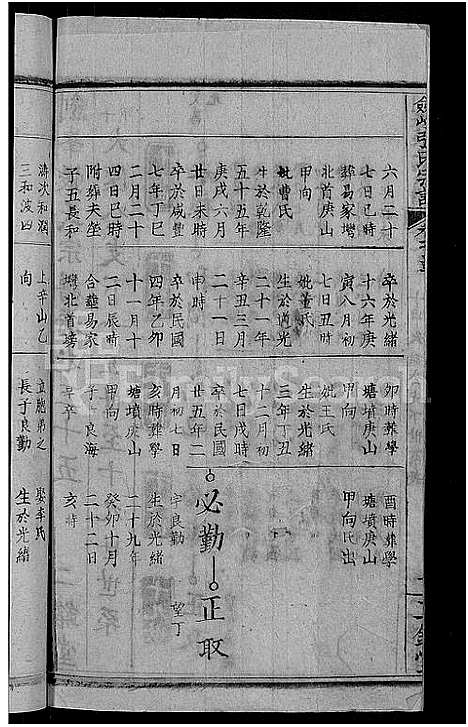 六月二十
七日巳時
葬易家壋
北首庚山
甲向
妣曹氏
生於乾隆
五十五年
庚戌六月
廿日未時
卒於咸豐
七年丁巳
二月二十
四日巳時
附葬夫塋
子五長和
濤次和潤
三和波四
卒於光緒
十六年庚
寅八月初
七日丑時
妣黃氏
生於道光
二十一年
辛丑三月
二十一日
申時
卒於民國
四年乙卯
十一月十
二日辰時
合葬易家
壋北首塝
上辛山乙
向
卯時葬學
塘墳庚山
甲向
妣王氏
生於光緒
三年丁丑
十二月初
七日戌時
卒於民國
廿五年二
月初七日
亥時葬學
塘墳庚山
甲向
子一良海
早卒
立胞弟之
長子良勤
酉時葬學
塘墳庚山
甲向氏出
必勤
正取
字良勤
望丁
生於光緒
二十九年
癸卯十月
二十二日
亥時
娶李氏
生於光緒